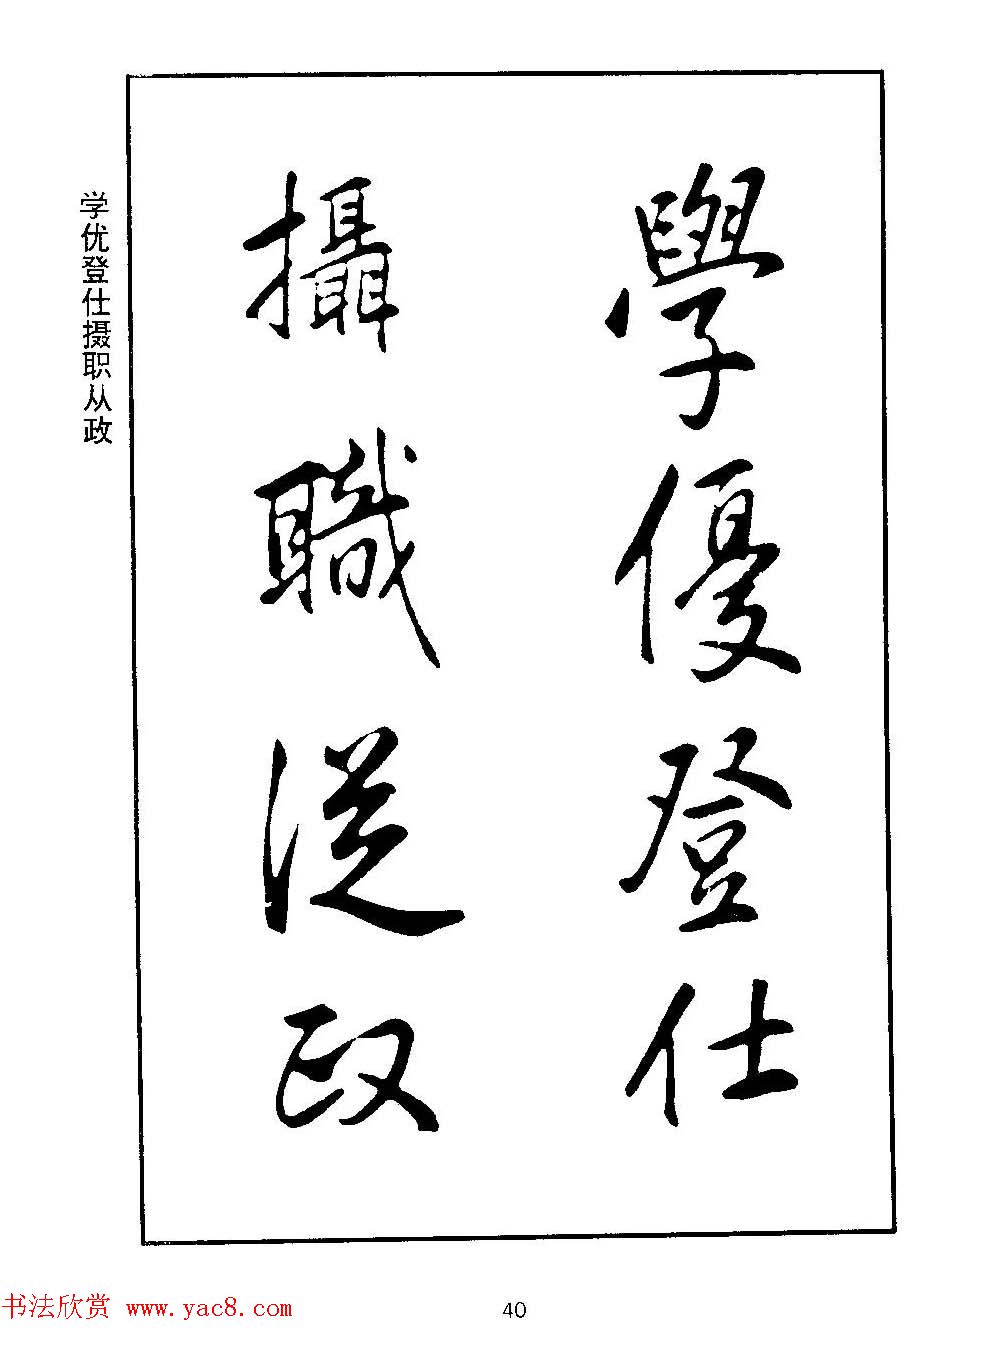 學優登仕
攝職從政
学优登仕摄职从政
书法欣赏 www.yac8.com
40